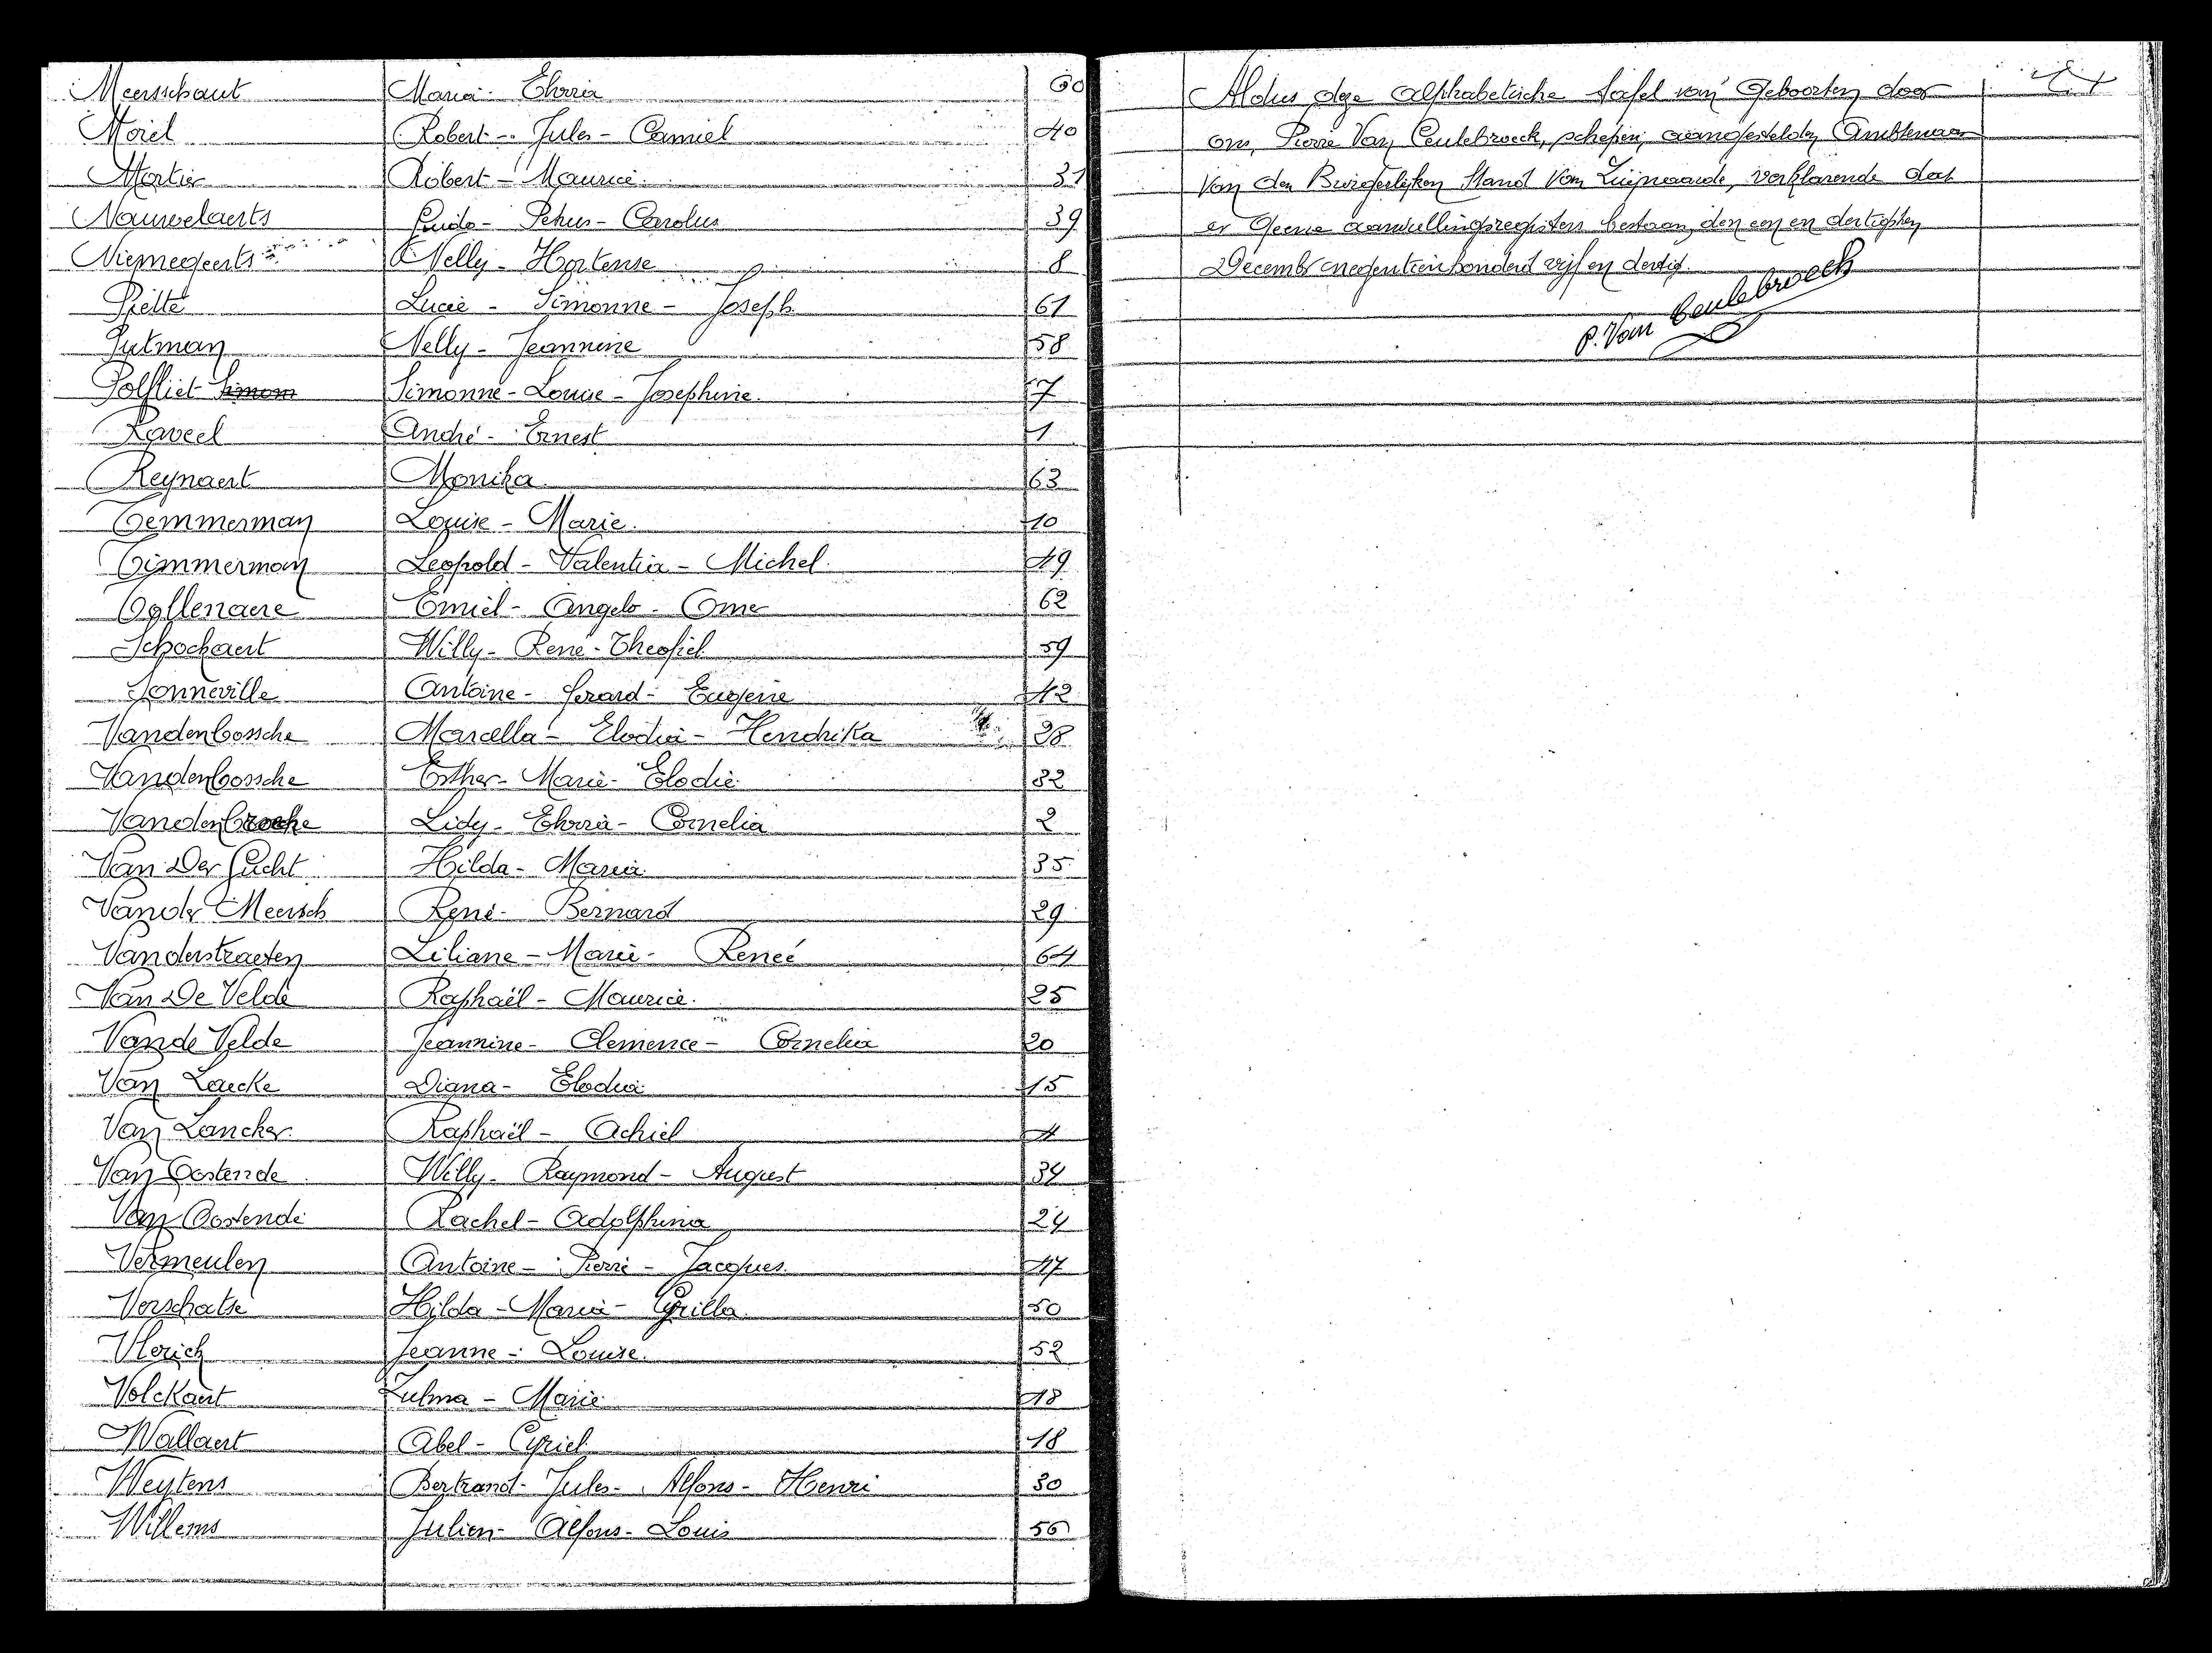 Meersschaut Maria - Elvira 60
Morel Robert - Jules - Camiel 40
Mortier Robert - Maurice 31
Nauwelaerts Guido - Petrus - Carolus 39
Niemegeerts Nelly - Hortense 8
Piette Lucie - Simonne - Joseph 61
Putman Nelly - Jeannine 58
Polfliet Simonne - Louise - Josephine 7
Raveel André - Ernest 1
Reynaert Monika 63
Temmerman Louise - Marie 10
Timmerman Leopold - Valentin - Michel 49
Tollenaere Emiel - Angelo - Omer 62
Schockaert Willy - René - Theofiel 59
Sonneville Antoine - Gerard - Eugène 42
Vandenbossche Marcella - Elodia - Hendrika 28
Vandenbossche Esther - Marie - Elodie 32
Vandenbroeke Lidy - Elvira - Cornelia 2
Van Der Gucht Hilda - Maria 35
Vander Meersch René - Bernard 29
Vanderstraeten Liliane - Marie - Reneé 64
Van De Velde Raphaël - Maurice 25
Van de Velde Jeannine - Clemence - Cornelia 20
Van Laecke Diana - Elodia 15
Van Lancker Raphaël - Achiel 4
Van Oostende Willy - Raymond - August 34
Van Oostende Rachel - Adolphina 24
Vermeulen Antoine - Pierre - Jacques 47
Verschatse Hilda - Maria - Cyrilla 50
Vlerick Jeanne - Louise 52
Volckaert Zulma - Marie 48
Wallaert Abel - Cyriel 18
Weytens Bertrand - Jules - Alfons - Henri 30
Willems Julien - Alfons - Louis 56
Aldus deze alphabetische tafel van Geboorten door
ons, Pierre Van Ceulebroeck, schepen, aangestelden Ambtenaar
van den Burgerlijken Stand van Zwijnaarde, verklarende dat
er geene aanvullingsregisters bestaan, den een en dertigsten
December negentienhonderd vijf en dertig.
P. Van Ceulebroeck